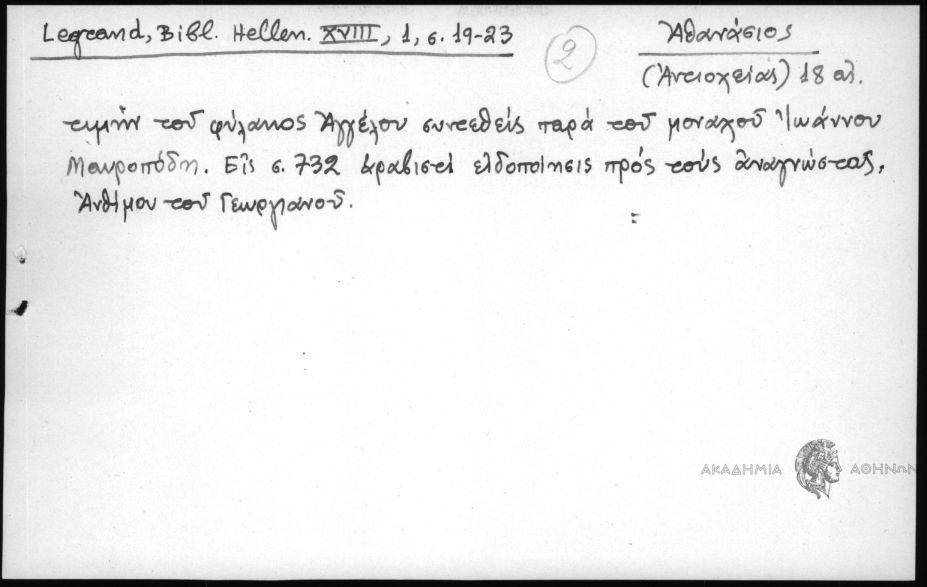 Legrand, Bibl. Hellen. XVIII, 1, σ. 19-23
2
Ἀθανάσιος
(Ἀντιοχείας) 18 αἰ.
τιμὴν τοῦ φύλακος Ἀγγέλου συντεθεὶς παρὰ τοῦ μοναχοῦ Ἰωάννου
Μαυροπόδη. Εἰς σ. 732 ἀραβιστὶ εἰδοποίησις πρὸς τοὺς ἀναγνώστας,
Ἀνθίμου τοῦ Γεωργιανοῦ.
ΑΚΑΔΗΜΙΑ ΑΘΗΝΩΝ